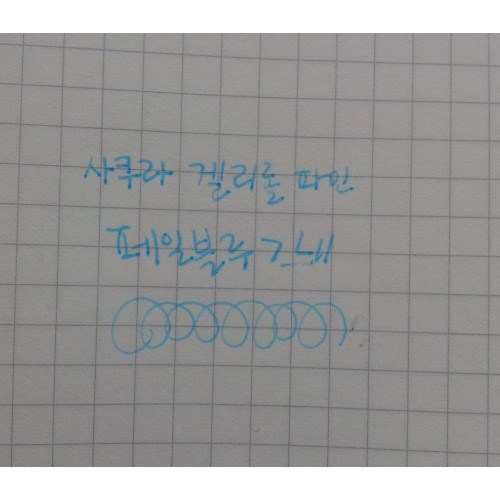 사쿠라 겔리롤 파인
페일블루